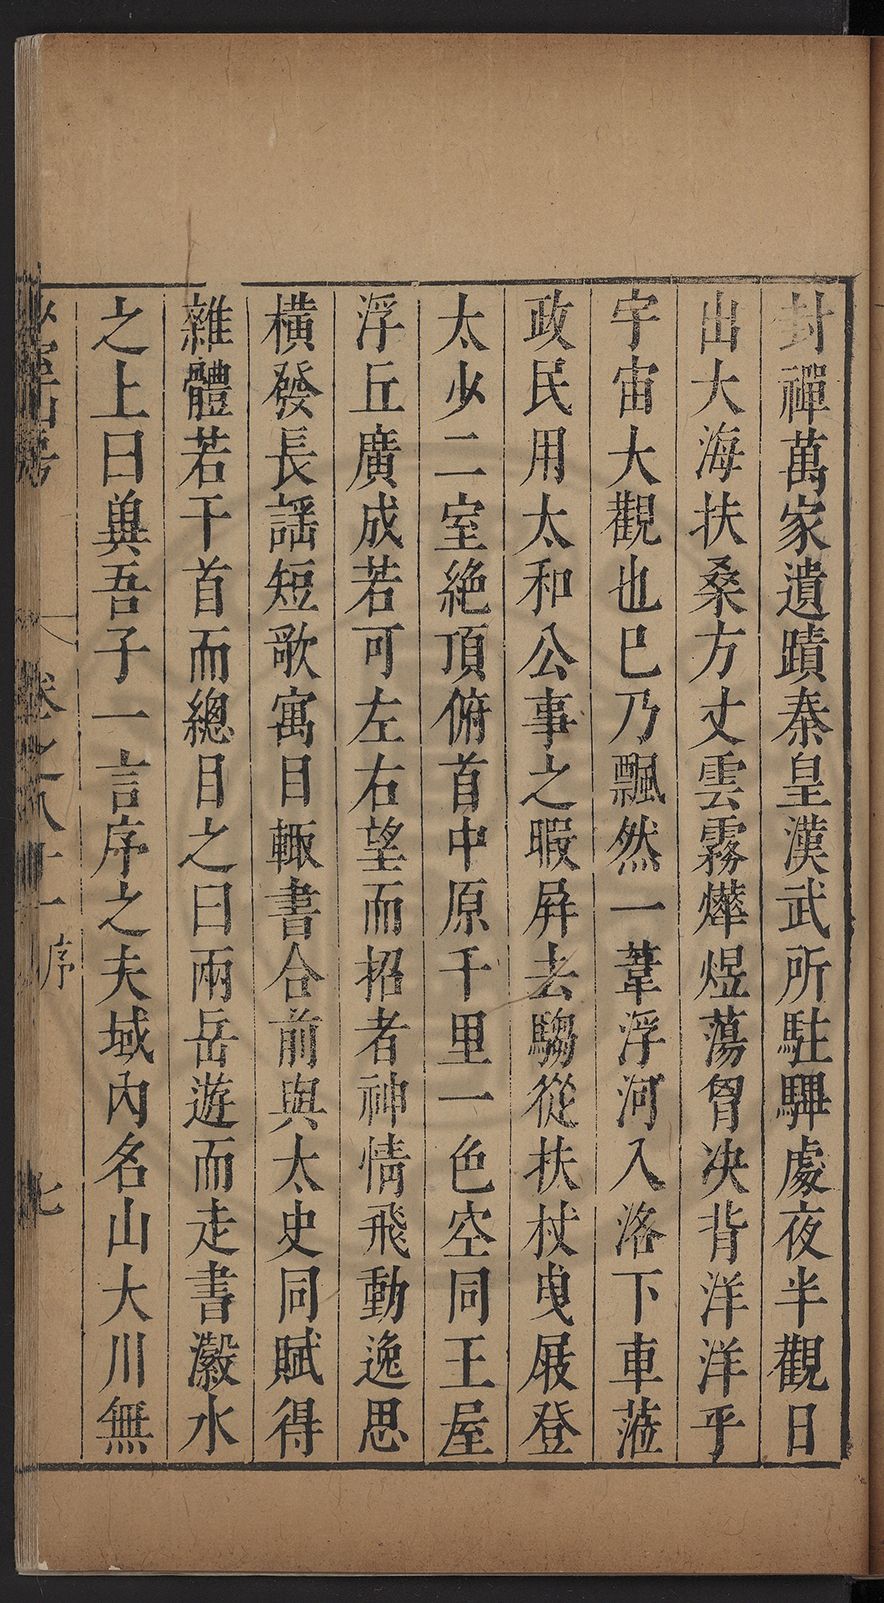 封禪萬家遺蹟秦皇漢武所駐驆處夜半觀日
出大海扶桑方丈雲霧燁煜蕩胷决背洋洋乎
宇宙大觀也巳乃飄然一葦浮河入洛下車蒞
政民用太和公事之暇屏去騶從扶杖曳屐登
太少二室絶頂俯首中原千里一色空同王屋
浮丘廣成若可左右望而招者神情飛動逸思
橫發長謡短歌寓目輙書合前與太史同賦得
雜體若干首而總目之曰兩岳遊而走書瀫水
之上曰與吾子一言序之夫域內名山大川無
卷之八十一 序 七